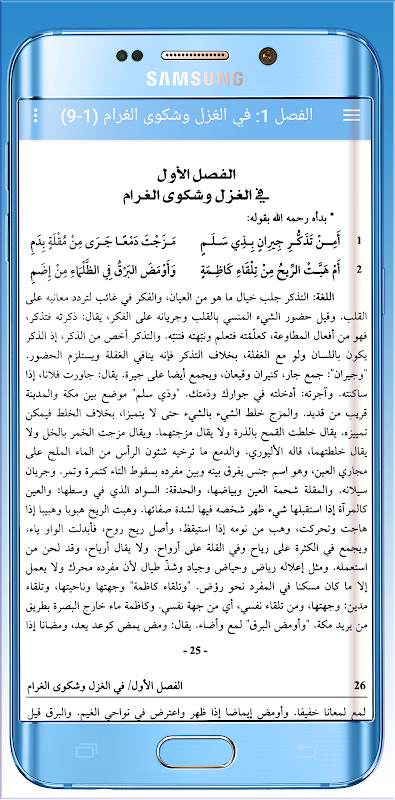 SAMSUNG
الفصل 1: في الغزل وشكوى الغرام (1-9)
الفصل الأول
في الغزل وشكوى الغرام
* بدأه رحمه الله بقوله:
1 أَمِنْ تَذَكُّرِ جِيرانٍ بِذِي سَلَمٍ مَزَجْتَ دَمْعًا جَرَى مِنْ مُقْلَةٍ بِدَمِ
2 أَمْ هَبَّتْ الرِّيحُ مِنْ تِلْقَاءِ كَاظِمَةٍ وَأَوْمَضَ البَرْقُ فِي الظَّلْمَاءِ مِنْ إِضَمِ
اللغة: التذكر جلب خيال ما هو من العيان، والفكر في غائب لتردد معانيه على
القلب. وقيل حضور الشيء المنسي بالقلب وجريانه على الفكر، يقال: ذكرته فتذكر،
فهو من أفعال المطاوعة، كعلّمته فتعلم ونبّهته فتنبّه. والتذكر أخص من الذكر، إذ الذكر
يكون باللسان ولو مع الغفلة، بخلاف التذكر فإنه ينافي الغفلة ويستلزم الحضور.
"وجيران": جمع جار، كنيران وقيعان، ويجمع أيضا على جيرة. يقال: جاورت فلانا، إذا
ساكنته. وآجرته: أدخلته في جوارك وذمتك. "وذي سلم" موضع بين مكة والمدينة
قريب من قديد. والمزج خلط الشيء بالشيء حتى لا يتميزا، بخلاف الخلط فيمكن
تمييزه. يقال خلطت القمح بالذرة ولا يقال مزجتهما. ويقال مزجت الخمر بالخل ولا
يقال خلطتهما، قاله الأليوري. والدمع ما ترخيه شئون الرأس من الماء الملح على
مجاري العين، وهو اسم جنس يفرق بينه وبين مفرده بسقوط التاء كتمرة وتمر. وجريان
سيلانه. والمقلة شحمة العين وبياضها، والحدقة: السواد الذي في وسطها: والعين
كالمرآة إذا استقبلها شيء ظهر شخصه فيها لشدة صفائها. وهبت الريح هبوبا وهبيبا إذا
هاجت وتحركت، وهب من نومه إذا استيقظ، وأصل ريح روح، فأبدلت الواو ياء،
ويجمع في الكثرة على رياح وفي القلة على أرواح. ولا يقال أرياح، وقد لحن من
استعمله. ومثل إعلاله رياض وحياض وجياد وشذّ طيال لأن مفرده محرك ولا يعمل
إلا ما كان مسكنا في المفرد نحو روْض. "وتلقاء كاظمة" وجهتها وناحيتها، وتلقاء
مدين: وجهتها، ومن تلقاء نفسي، أي من جهة نفسي. وكاظمة ماء خارج البصرة بطريق
من يريد مكة. "وأومض البرق" لمع وأضاء. يقال: ومض يمض كوعد يعد، ومضانا إذا
- 25 -
26 الفصل الأول/ في الغزل وشكوى الغرام
لمع لمعانا خفيفا. وأومض إيماضا إذا ظهر واعترض في نواحي الغيم. والبرق قيل